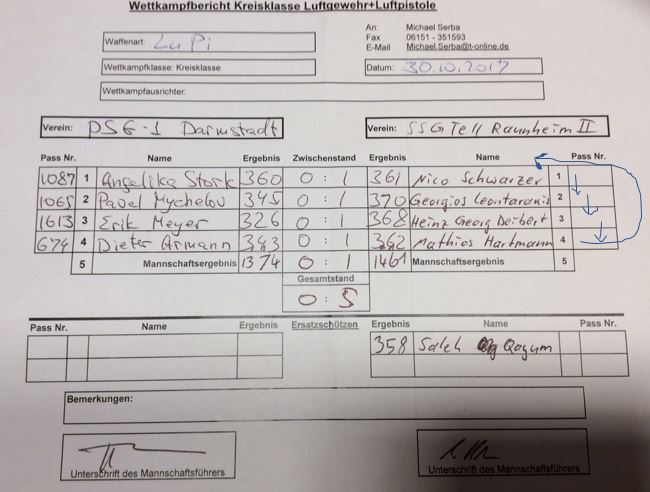 Wettkampfbericht Kreisklasse Luftgewehr+Luftpistole
Waffenart: LuPi
An: Michael Serba
Fax 06151 - 351593
E-Mail Michael.Serba@t-online.de
Wettkampfklasse: Kreisklasse
Datum: 30.10.2017
Wettkampfausrichter:
Verein: PSG-1 Darmstadt Verein: SSG Tell Raunheim II
Pass Nr. Name Ergebnis Zwischenstand Ergebnis Name Pass Nr.
1087 1 Angelika Stork 360 0 : 1 361 Nico Schwarzer 1
1065 2 Pavel Mychelov 345 0 : 1 370 Georgios 2
1613 3 Erik Meyer 326 0 : 1 368 Heinz Georg Deibert 3
674 4 Dieter 343 0 : 1 362 Mathias Hartmann 4
5 Mannschaftsergebnis 1374 0 : 1 1461 Mannschaftsergebnis 5
Gesamtstand
0 : 5
Pass Nr. Name Ergebnis Ersatzschützen Ergebnis Name Pass Nr.
358 Saleh Qayum
Bemerkungen:
Unterschrift des Mannschaftsführers Unterschrift des Mannschaftsführers